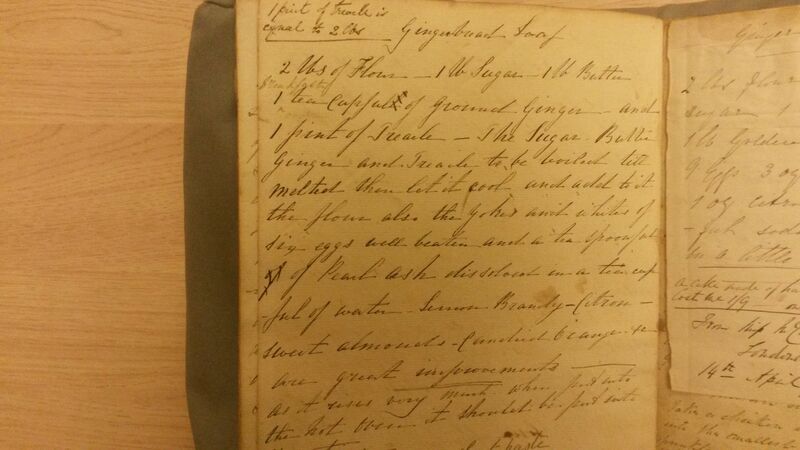 1 pint of treacle is
equal to 2 lbs
Gingerbread Loaf
2 lbs of Flour — 1 lb Sugar — 1 lb Butter
Breakfast
1 tea cupful of Ground Ginger — and
1 pint of Treacle — The Sugar Butter
Ginger and Treacle to be boiled till
melted then let it cool and add to it
the flour also the yokes and whites of
six eggs well beaten and a tea spoonful
of Pearl ash dissolved in a tea cup
-ful of water — Lemon Brandy — Citron —
sweet almonds — Candied Orange &c
are great improvements
as it rises very much when put into
the hot oven it should be put into
paste
Ginger
2 lbs flour
sugar 1
1 lb Golden
9 Eggs 3 oz
1 oz citro
-ful soda
in a little
a cake made of ha
cost me 1/9
From ship
London
14th April
into the smallest